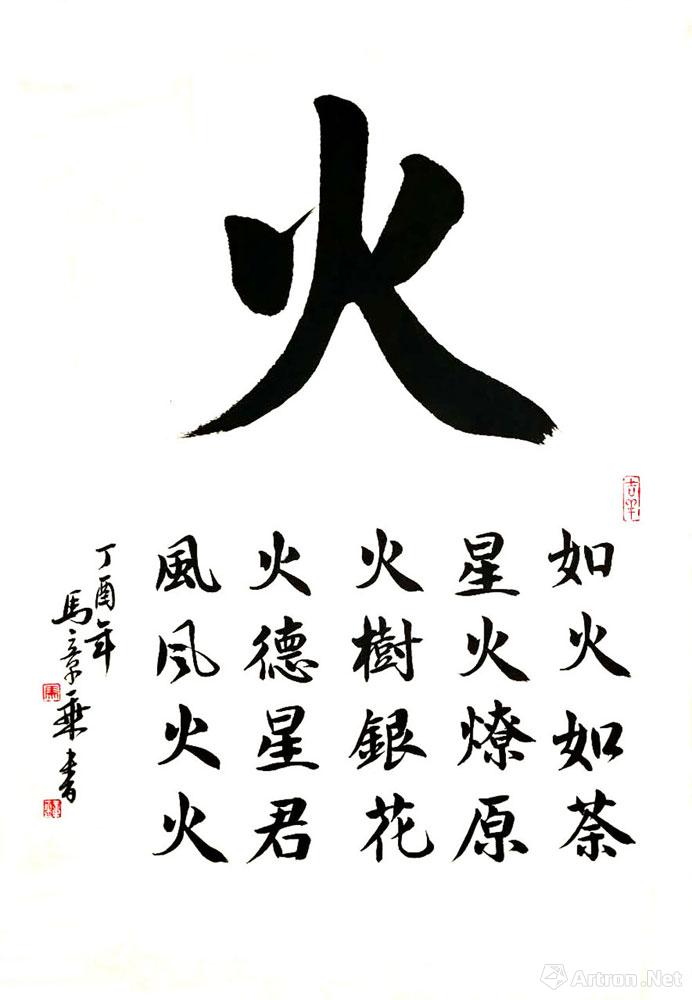 火
如火如荼
星火燎原
火樹銀花
火德星君
風风火火
丁酉年
馬章乘書
Artron.Net